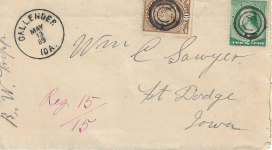 CALLENDER
MAY
13
89
IOA.
Wm C Sawyer,
Ft Dodge
Iowa
Reg 15
15